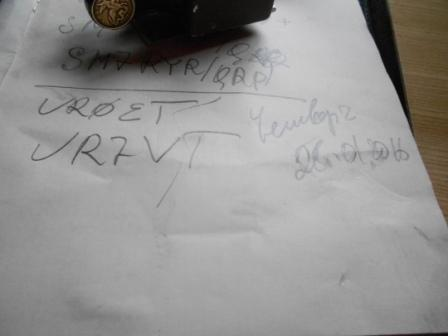 SM
SM7KYR/QRP
UR0ET
UR7VT
Четверг
28.01.2016